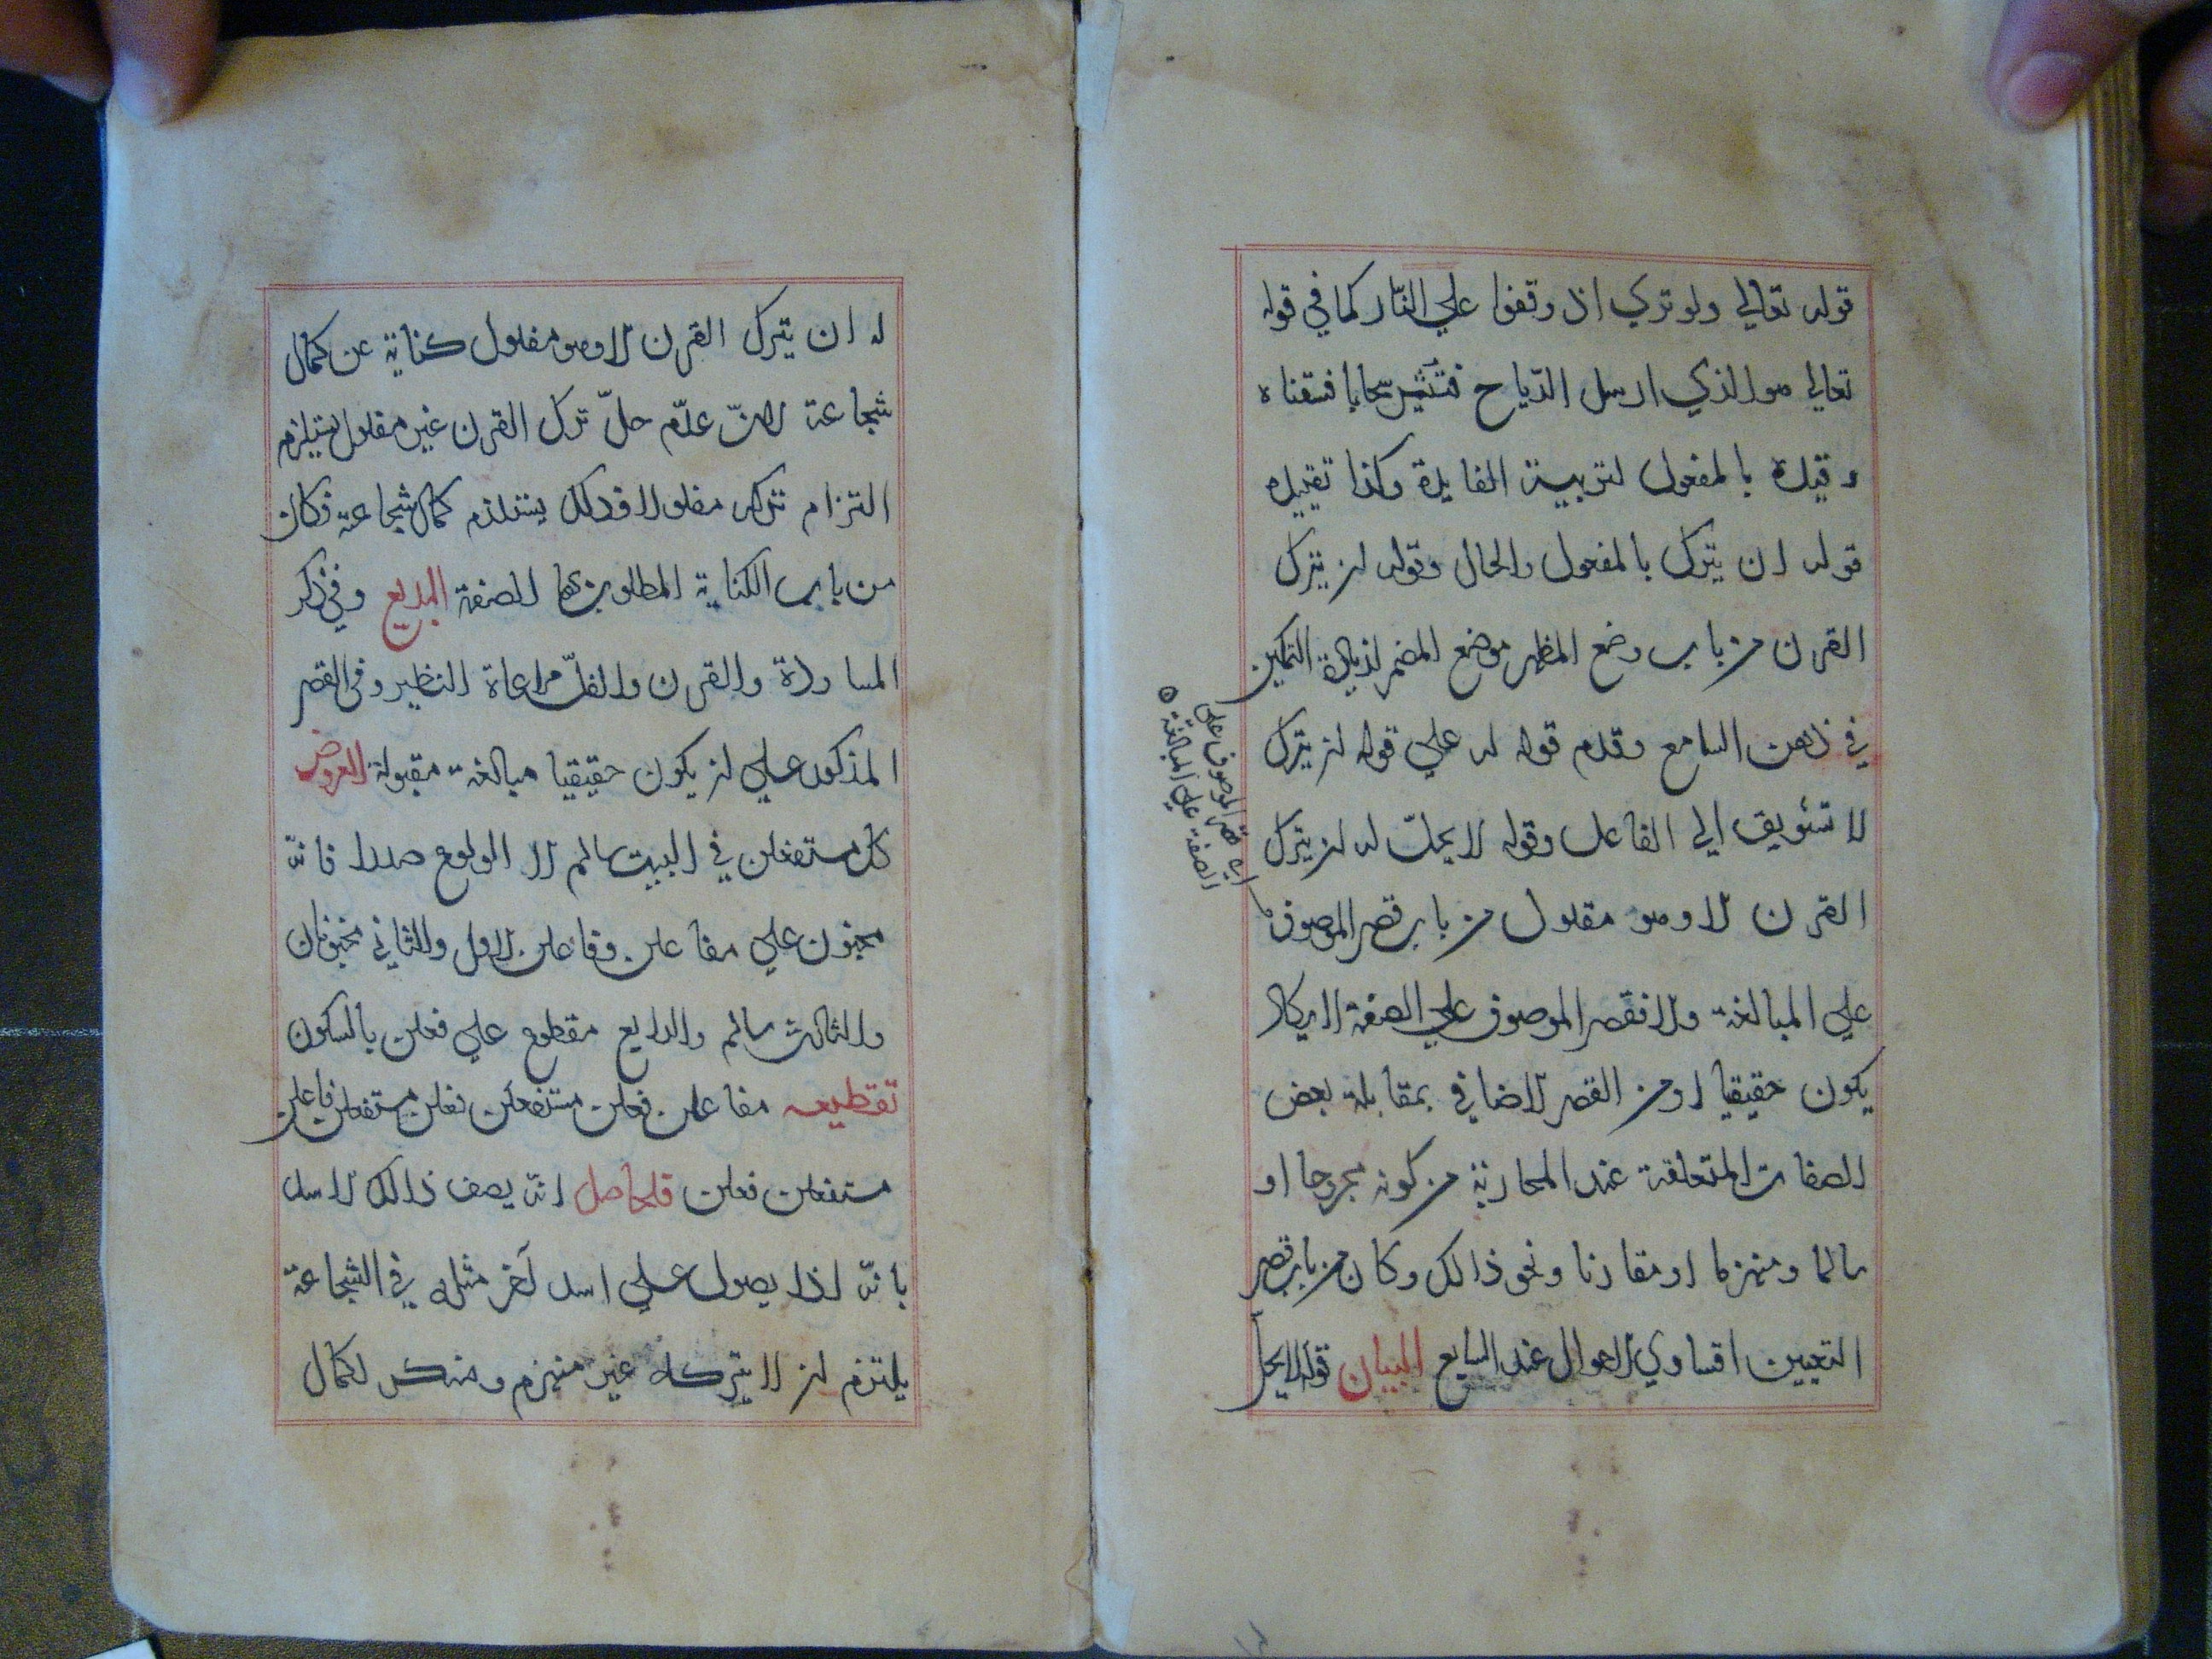 قوله تعالي ولو تري اذ وقفوا علي النّار كما في قوله
تعالي هو الذي ارسل الرّياح فتثير سحابا فسقناه
وقيده بالمفعول لتربية الفايدة وكذا تقييده
قوله ان يترك بالمفعول والحال وقوله ان يترك
القرن من باب وضع المظهر موضع المضمر لزيادة التمكين
في ذهن السامع وقدم قوله له علي قوله ان يترك
لا تشويق الي الفاعل وقوله لا يحلّ له ان يترك
القرن الا وهو مفلول من باب قصر الموصوف
علي المبالغة والا فقصر الموصوف علي الصفة لا يكاد
يكون حقيقيا او من القصر الاضافي بمقابلة بعض
الصفات المتعلقة عند المحاربة من كونه مجروحا او
سالما ومنهزما او مقارنا ونحو ذالك وكان من باب قصر
التعيين لتساوي الاحوال عند السامع البيان قوله لا يحلّ
اي قصر الموصوف علي
الصفة علي المبالغة
له ان يترك القرن الا وهو مفلول كناية عن كمال
شجاعة لانّ عدّم حلّ ترك القرن غير مفلول يستلزم
التزام تركه مفلولا وذلك يستلزم كمال شجاعة فكان
من باب الكناية المطلوب بها الصفة البديع وفي ذكر
المساورة والقرن والفلّ مراعاة النظير وفي القصر
المذكور علي ان يكون حقيقيا مبالغة مقبولة العروض
كل مستفعلن في البيت سالم الا الواقع صدرا فانّه
مخبون علي مفاعلن وفاعلن الاول والثاني مخبونان
والثالث سالم والرابع مقطوع علي فعلن بالسكون
تقطيعه مفاعلن فعلن مستفعلن فعلن مستفعلن فاعلن
مستفعلن فعلن فلحاصل انّه يصف ذالك الاسد
بانّه اذا يصول علي اسد آخر مثله في الشجاعة
يلتزم ان لا يتركه غير منهزم ومنكسر لكمال